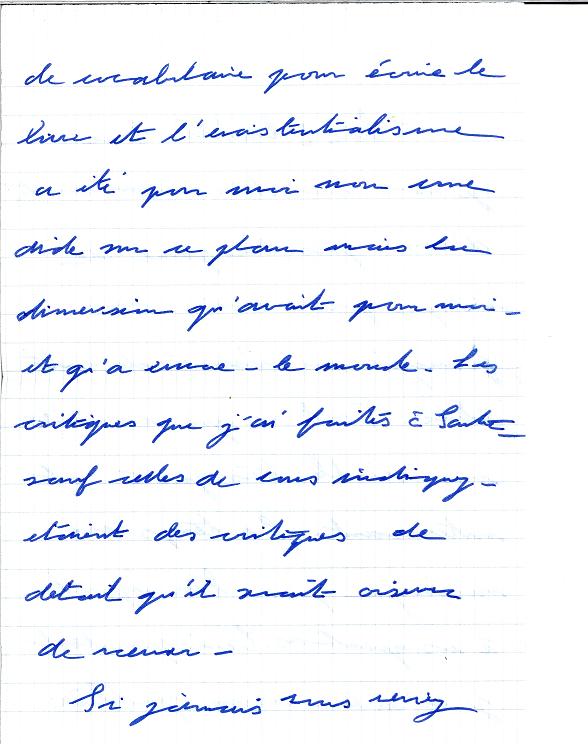 de vocabulaire pour écrire le
livre et l'existentialisme
a été pour moi non une
aide sur ce plan mais la
dimension qu'avait pour moi -
et qu'a encore - le monde. Les
critiques que j'ai faites à Sartre -
sauf celles de vous indiquez -
étaient des critiques de
détail qu'il serait oiseux
de
Si jamais vous veniez